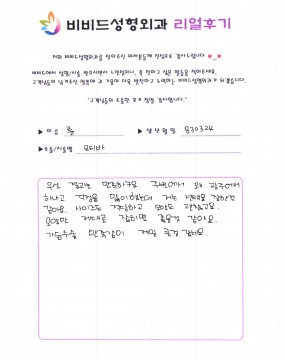 비비드성형외과 리얼후기
저희 비비드성형외과를 찾아주신 여러분들께 진심으로 감사드립니다
비비드에서 성형/시술 받으시면서 느꼈던점이나, 꼭 전하고 싶은 말들을 적어주세요.
고객님들이 남겨주신 말씀에 귀 기울여 더욱 발전하고 노력하는 비비드성형외과가 되겠습니다.
"고객님들의 소중한 후기 정말 감사합니다."
▶ 이 름
▶ 생 년 월 일 830324
▶ 수술/시술명 모티바
우선 결과는 만족하구요. 주변에서 왜 광주에서
하냐고 걱정을 많이했는데 저는 선택을 잘한것
같아요. 사이즈도 적당하고 모양도 괜찮고요.
모양만 제대로 잡히면 좋을것 같아요.
가슴수술 만족감이 제일 클것 같네요.